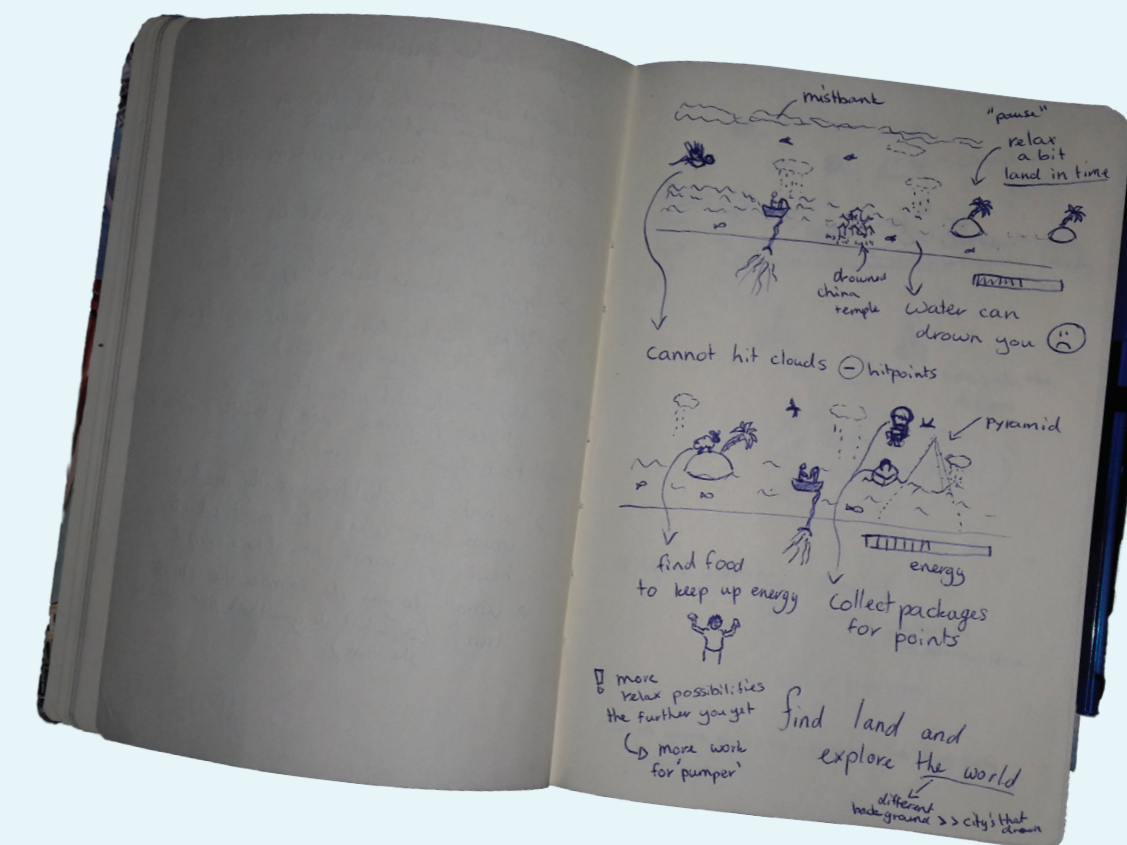 mistbank
"pause"
relax
a bit
land in time
drowned
china
temple
water can
drown you
cannot hit clouds - hitpoints
pyramid
energy
find food
to keep up energy
Collect packages
for points
! more
relax possibilities
the further you get
more work
for 'pumper'
find land and
explore the world
different
background >> city's that
drown